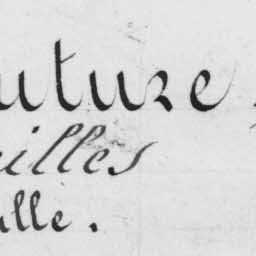 uture
illes
ille.